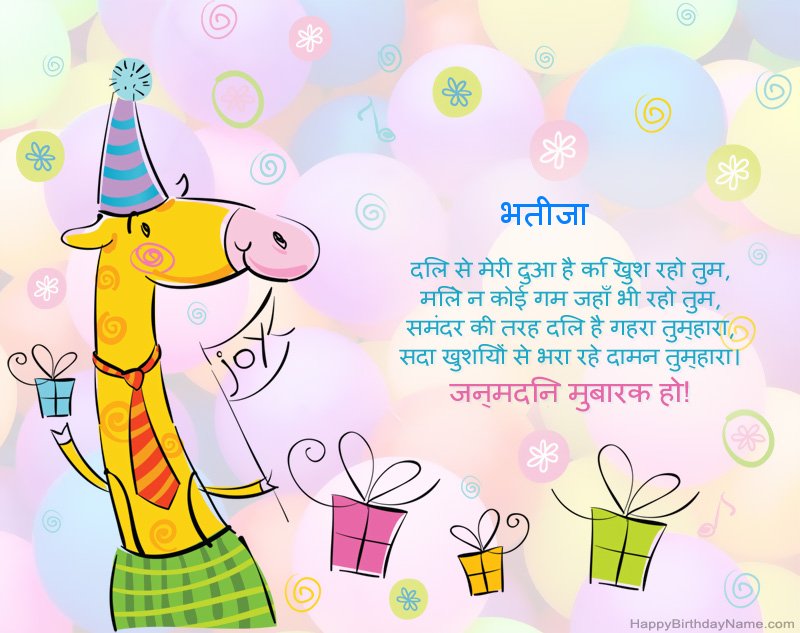 भतीजा
दलि से मेरी दुआ है क िखुश रहो तुम,
मलिे न कोई गम जहाँ भी रहो तुम,
समंदर की तरह दलि है गहरा तुम्हारा,
सदा खुशयिों से भरा रहे दामन तुम्हारा।
जन्मदनि मुबारक हो!
joy
HappyBirthdayName.com